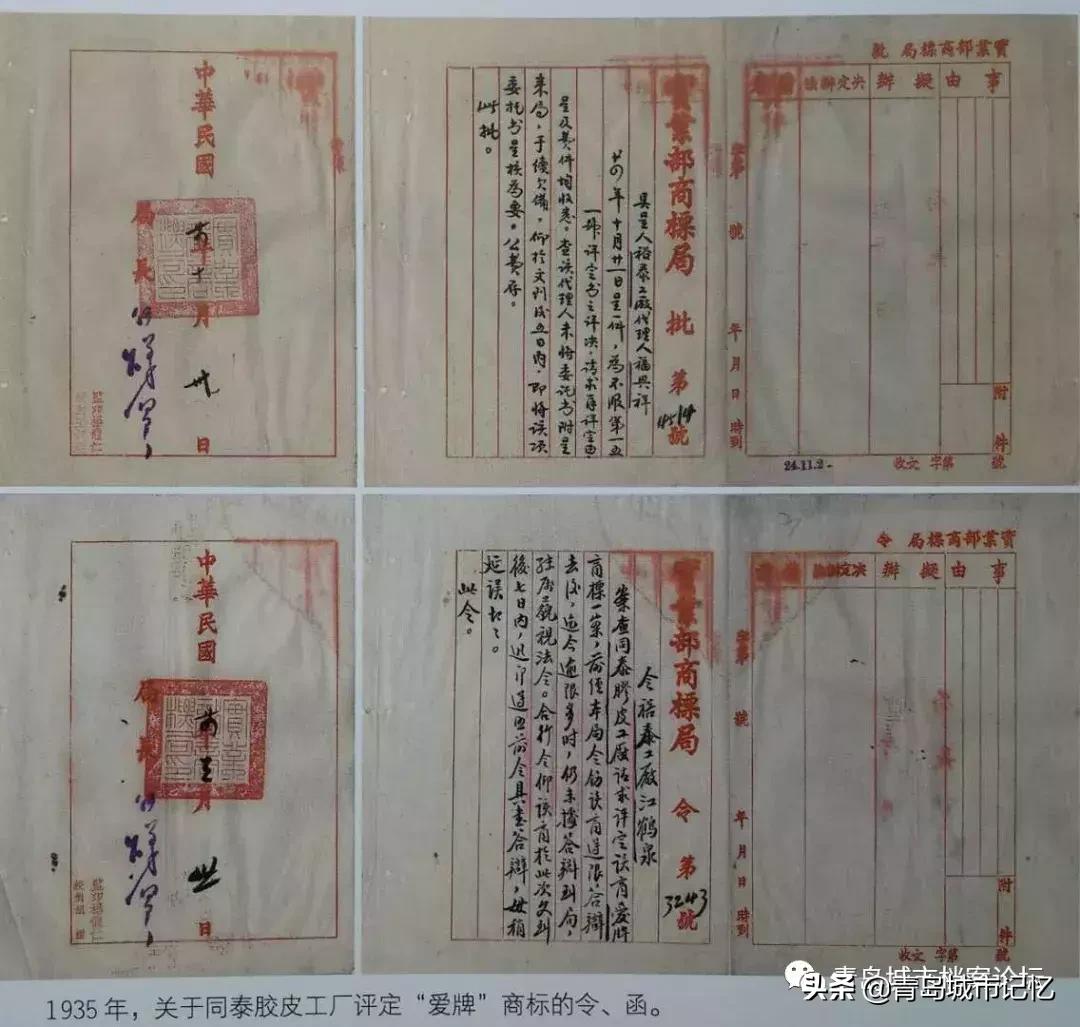 實業部商標局 號
事由 擬辦 決定辦法
附件
號
字第 號
年 月 日 時到
收文 字第 號
24.11.2-
實業部商標局 批 第4514號
具呈人裕泰工廠代理人福興祥
廿四年十月廿一日呈一件，為不服第一五
一號評定書之評決，請求再評定由
呈及費件均收悉。查該代理人未將委託書附呈
來局，手續欠備，仰於文到後五日內，即將該項
委托書呈核為要。公費存。
此批。
中華民國
廿四年十一月廿日
局長
監印楊健仁
實業部商標局 令
事由 擬辦 決定辦法
附件
號
字第 號
年 月 日 時到
收文 字第 號
實業部商標局 令 第3243號
令裕泰工廠江鶴泉
案查同泰膠皮工廠請求評定該商愛牌
商標一案，前經本局令飭該商逐限答辯
去後，迄今逾限多時，仍未據答辯到局，
殊屬藐視法令。合行令仰該商於此次文到
後七日內，迅即遵照前令具書答辯，毋稍
延誤
此令。
中華民國
局長
月 日
監印楊健仁
1935年，关于同泰胶皮工厂评定“爱牌”商标的令、函。
青岛城市档案论坛
头条@青岛城市记忆